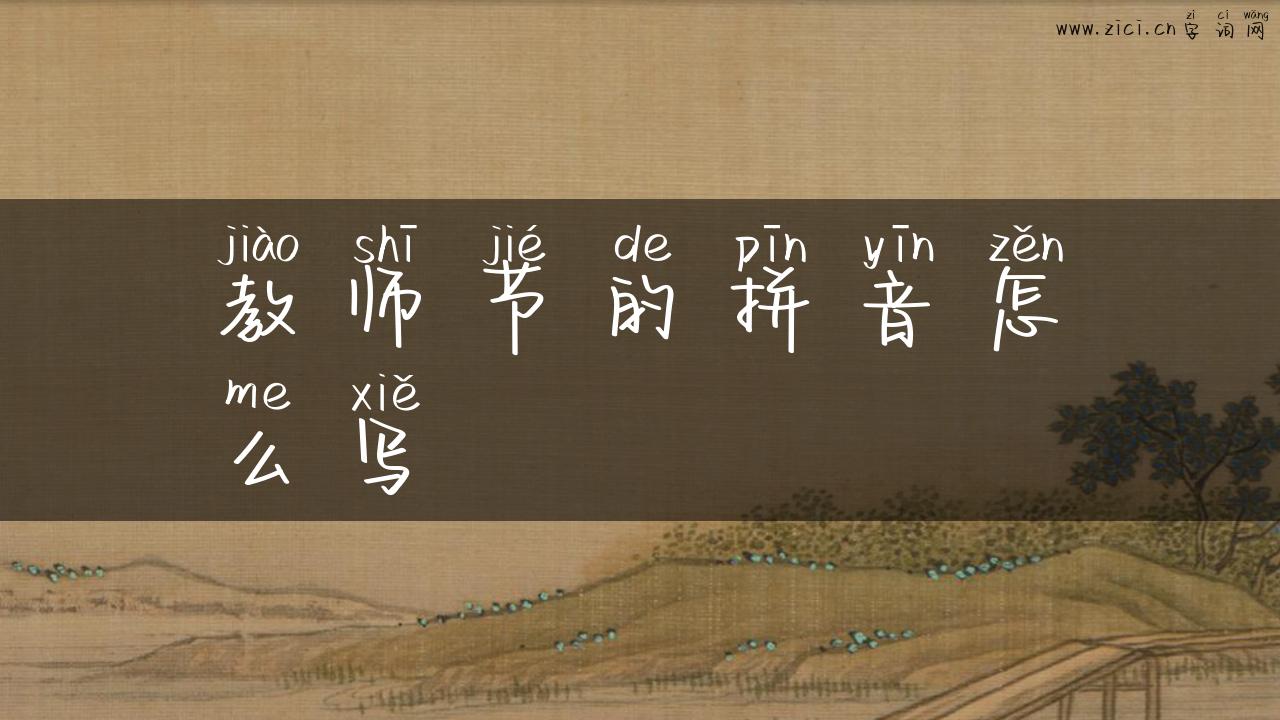 zì cí wǎng
www.zici.cn 字词网
jiào shī jié de pīn yīn zěn
教师节的拼音怎
me xiě
么写